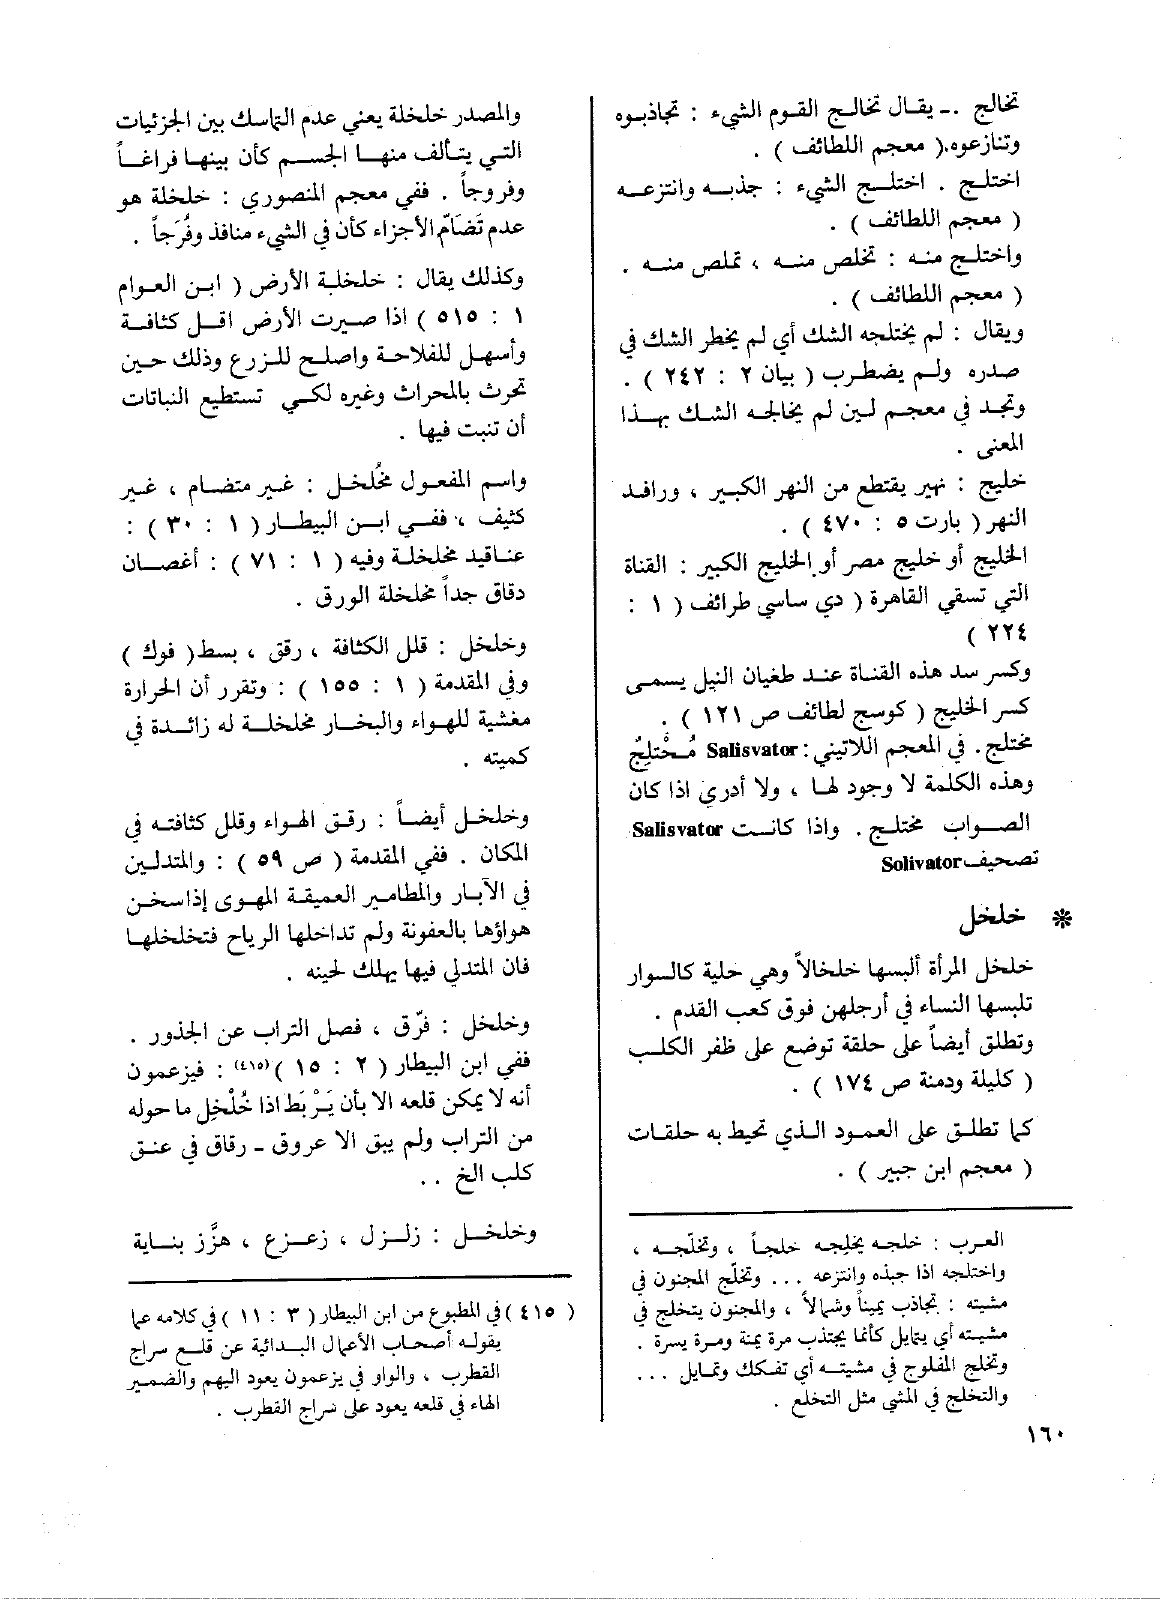 تخالج .ـ يقال تخالج القوم الشيء : تجاذبوه
وتنازعوه.( معجم اللطائف ) .
اختلج . اختلج الشيء : جذبه وانتزعه
( معجم اللطائف ) .
واختلج منه : تخلص منه ، تملص منه .
( معجم اللطائف ) .
ويقال : لم يختلجه الشك أي لم يخطر الشك في
صدره ولم يضطرب ( بيان ٢ : ٢٤٢ ) .
وتجد في معجم لين لم يخالجه الشك بهذا
المعنى .
خليج : نهير يقتطع من النهر الكبير ، ورافد
النهر ( بارت ٥ : ٤٧٠ ) .
الخليج أو خليج مصر أو الخليج الكبير : القناة
التي تسقي القاهرة ( دي ساسي طرائف ( ١ :
٢٢٤ )
وكسر سد هذه القناة عند طغيان النيل يسمى
كسر الخليج ( كوسج لطائف ص ١٢١ ) .
مختلج . في المعجم اللاتيني : Salisvator مُخْتلِجٌ
وهذه الكلمة لا وجود لها ، ولا أدري اذا كان
الصواب مختلج . واذا كانت Salisvator
تصحيف Solivator
❊ خلخل
خلخل المرأة ألبسها خلخالاً وهي حلية كالسوار
تلبسها النساء في أرجلهن فوق كعب القدم .
وتطلق أيضاً على حلقة توضع على ظفر الكلب
( كليلة ودمنة ص ١٧٤ ) .
كما تطلق على العمود الذي تحيط به حلقات
( معجم ابن جبير ) .
العرب : خلجه يخلِجه خلجاً ، وتخلّجه ،
واختلجه اذا جبذه وانتزعه ... وتخلّج المجنون في
مشيته : تجاذب يميناً وشمالاً ، والمجنون يتخلج في
مشيته أي يتمايل كأنما يجتذب مرة يمنة ومرة يسرة .
وتخلج المفلوج في مشيته أي تفكك وتمايل ...
والتخلج في المشي مثل التخلع .
والمصدر خلخلة يعني عدم التماسك بين الجزئيات
التي يتألف منها الجسم كأن بينها فراغاً
وفروجاً . ففي معجم المنصوري : خلخلة هو
عدم تَضَامّ الأجزاء كأن في الشيء منافذ وفُرَجاً .
وكذلك يقال : خلخلة الأرض ( ابن العوام
١ : ٥١٥ ) اذا صيرت الأرض اقل كثافة
وأسهل للفلاحة واصلح للزرع وذلك حين
تحرث بالمحراث وغيره لكي تستطيع النباتات
أن تنبت فيها .
واسم المفعول مُخلخل : غير متضام ، غير
كثيف ، ففي ابن البيطار ( ١ : ٣٠ ) :
عناقيد مخلخلة وفيه ( ١ : ٧١ ) : أغصان
دقاق جداً مخلخلة الورق .
وخلخل : قلل الكثافة ، رقق ، بسط( فوك )
وفي المقدمة ( ١ : ١٥٥ ) : وتقرر أن الحرارة
مغشية للهواء والبخار مخلخلة له زائدة في
كميته .
وخلخل أيضاً : رقق الهواء وقلل كثافته في
المكان . ففي المقدمة ( ص ٥٩ ) : والمتدلين
في الآبار والمطامير العميقة المهوى إذا سخن
هواؤها بالعفونة ولم تداخلها الرياح فتخلخلها
فان المتدلي فيها يهلك لحينه .
وخلخل : فرّق ، فصل التراب عن الجذور .
ففي ابن البيطار ( ٢ : ١٥ )(٤١٥) : فيزعمون
أنه لا يمكن قلعه الا بأن يَرْبَط اذا خُلْخِل ما حوله
من التراب ولم يبق الا عروق ـ رقاق في عنق
كلب الخ ..
وخلخل : زلزل ، زعزع ، هزَّز بناية
( ٤١٥ ) في المطبوع من ابن البيطار ( ٣ : ١١ ) في كلامه عما
يقوله أصحاب الأعمال البدائية عن قلع سراج
القطرب ، والواو في يزعمون يعود اليهم والضمير
الهاء في قلعه يعود على سراج القطرب .
١٦٠